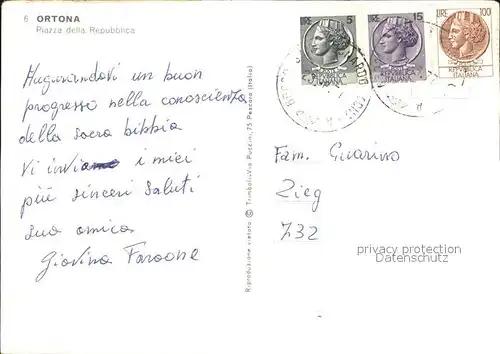 6 ORTONA
Piazza della Repubblica
Augurandovi un buon
progresso nella conoscienza
della sacra bibbia
Vi invio i miei
più sinceri saluti
sua amica
Giovina Faraone
Riproduzione vietata © Trimboli - Via Puccini, 75 Pescara (Italia)
LIRE 5
REPUBBLICA
ITALIANA
LIRE 15
REPUBBLICA
ITALIANA
LIRE 100
REPUBBLICA
ITALIANA
Fam. Guarino
Zieg
732
privacy protection
Datenschutz